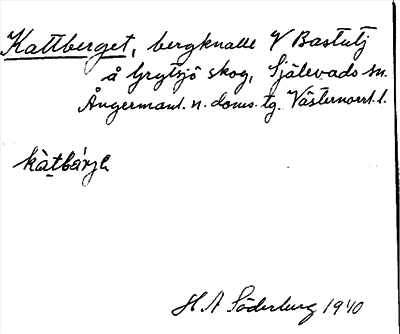 Kattberget, bergknalle V Bastutj
å Grytsjö skog, Själevads sn.
Ångermanl. n. doms. tg. Västernorrl. l.
kàtbárjə
H. A Söderberg 1940